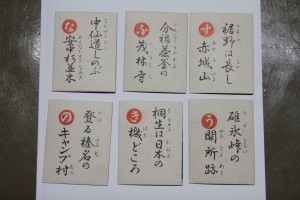 す
裾野は長し
赤城山
ぶ
分福茶釜の
茂林寺
な
中仙道しのぶ
安中杉並木
う
碓氷峠の
関所跡
き
桐生は日本の
機どころ
の
登る榛名の
キャンプ村